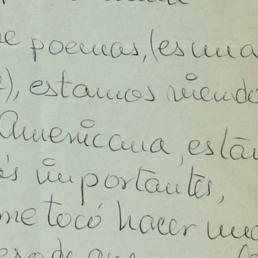 e poemas, (es una
), estamos viendo
Americana, está
s importantes,
me tocó hacer una